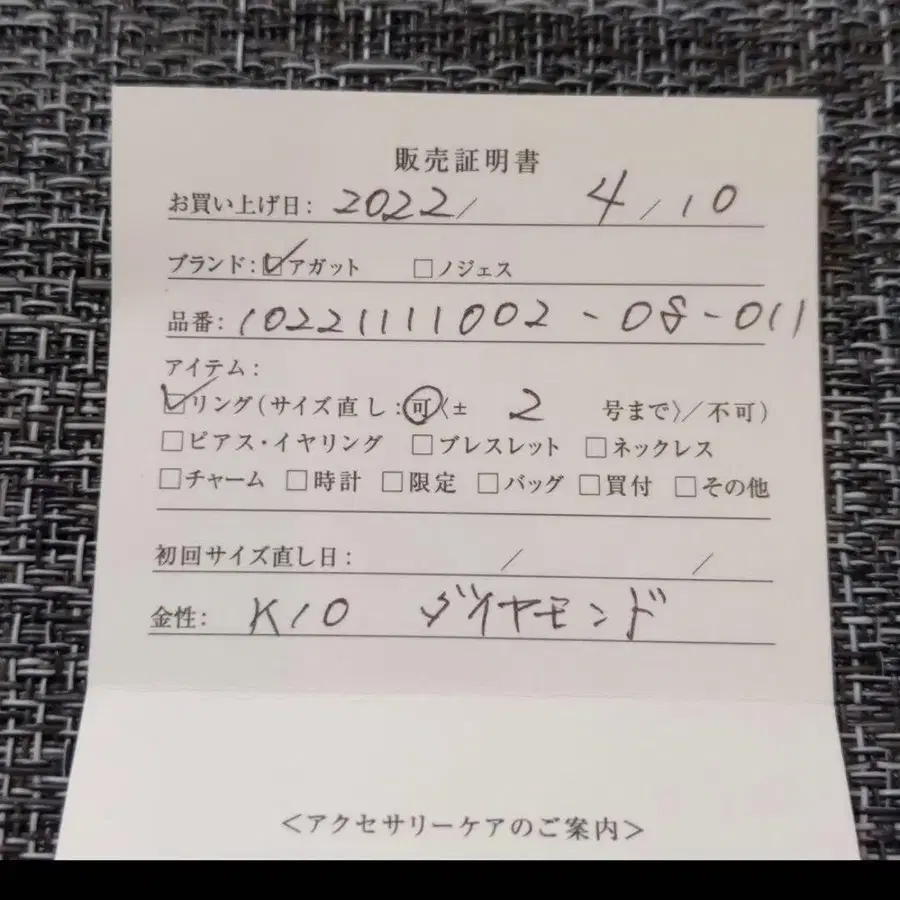 販売証明書
お買い上げ日: 2022/ 4/10
ブランド: ☑アガット □ノジェス
品番: 10221111002-08-011
アイテム:
☑リング(サイズ直し:可〈± 2 号まで〉/不可)
□ピアス・イヤリング □ブレスレット □ネックレス
□チャーム □時計 □限定 □バッグ □買付 □その他
初回サイズ直し日: / /
金性: K10 ダイヤモンド
<アクセサリーケアのご案内>